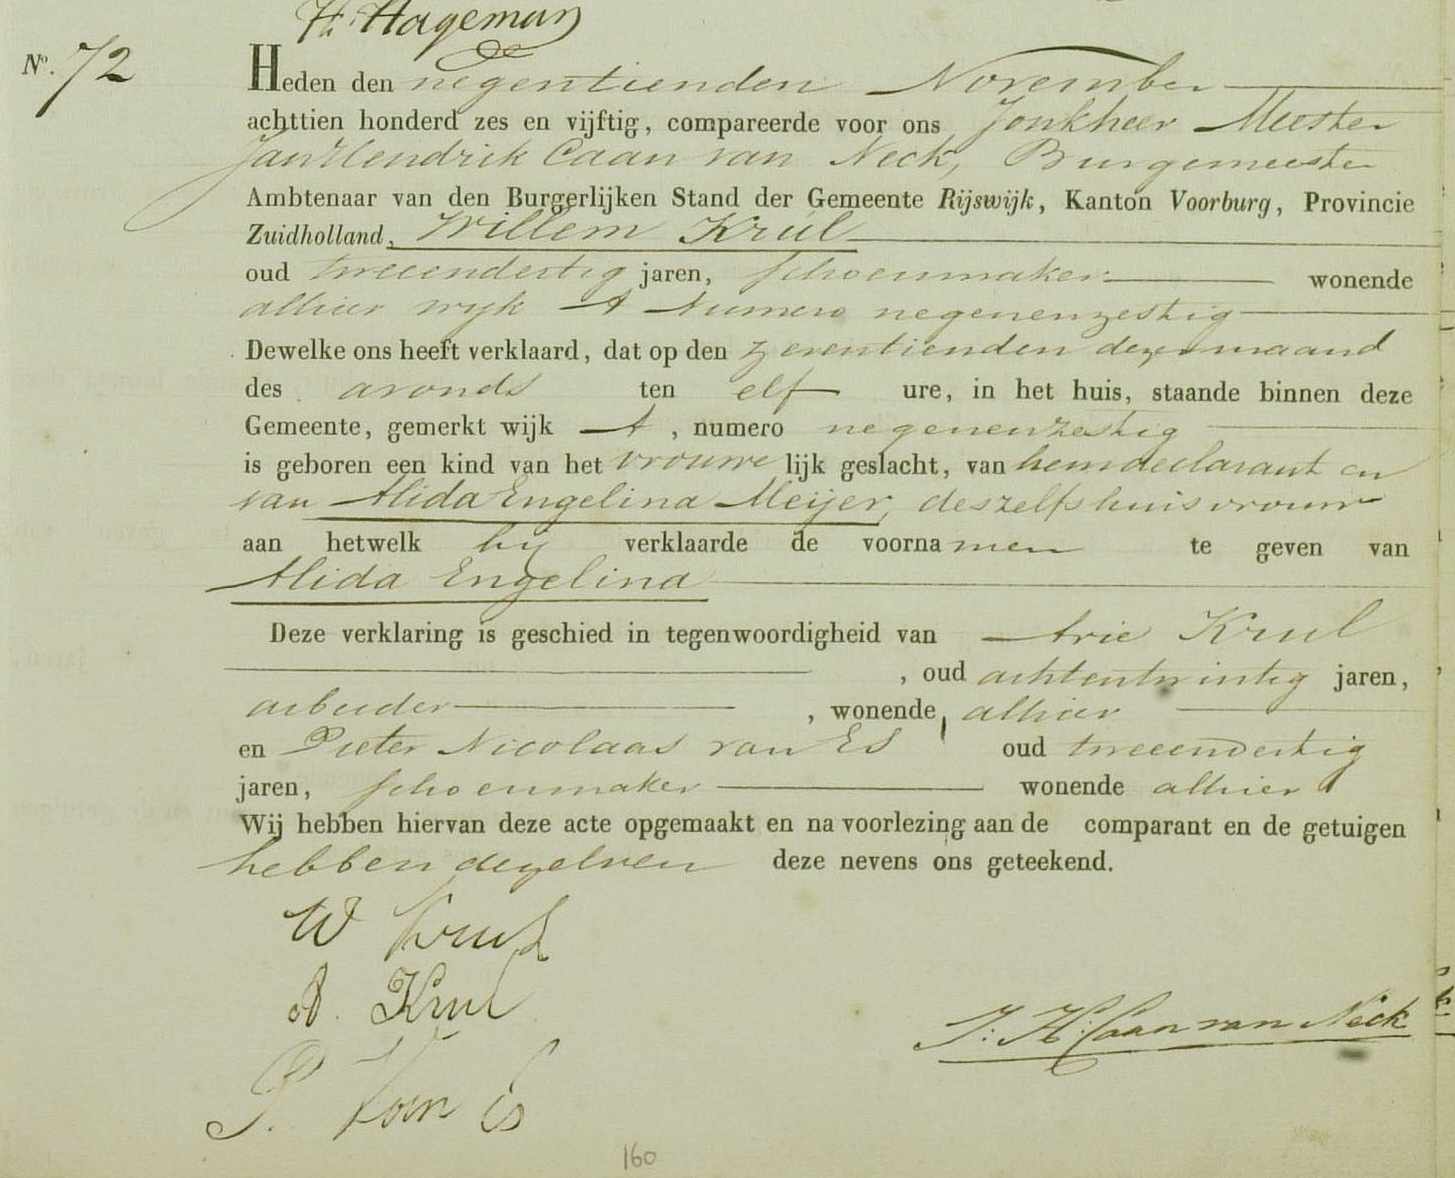 H. Hageman
No. 72
Heden den negentienden November
achttien honderd zes en vijftig, compareerde voor ons Jonkheer Meester
Jan Hendrik Caan van Neck, Burgemeester
Ambtenaar van den Burgerlijken Stand der Gemeente Rijswijk, Kanton Voorburg, Provincie
Zuidholland, Willem Krul
oud tweeendertig jaren, schoenmaker wonende
alhier wijk A Numero negenenzestig
Dewelke ons heeft verklaard, dat op den zeventienden dezer maand
des avonds ten elf ure, in het huis, staande binnen deze
Gemeente, gemerkt wijk A, numero negenenzestig
is geboren een kind van het vrouwelijk geslacht, van hem declarant en
van Alida Engelina Meijer, deszelfs huisvrouw
aan hetwelk hij verklaarde de voornamen te geven van
Alida Engelina
Deze verklaring is geschied in tegenwoordigheid van Arie Krul
, oud achtentwintig jaren,
arbeider , wonende alhier
en Pieter Nicolaas van Es oud tweeendertig
jaren, schoenmaker wonende alhier
Wij hebben hiervan deze acte opgemaakt en na voorlezing aan de comparant en de getuigen
hebben dezelven deze nevens ons geteekend.
W Krul
A. Krul
J: H: Caan van Neck
P. Van Es
160